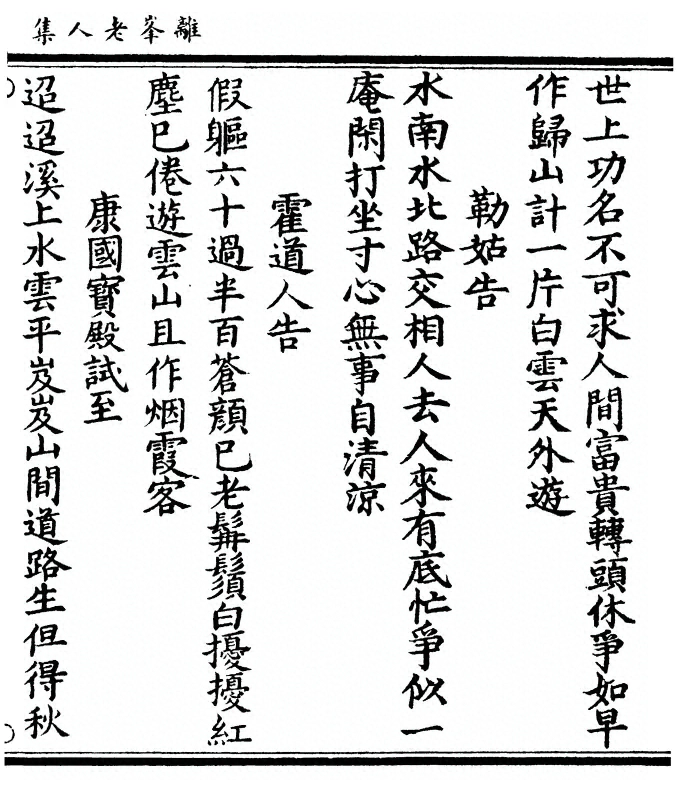 離峯老人集
世上功名不可求人間富貴轉頭休爭如早
作歸山計一片白雲天外遊
勒姑告
水南水北路交相人去人來有底忙爭似一
庵閑打坐寸心無事自清涼
霍道人告
假軀六十過半百蒼顏已老髯鬚白擾擾紅
塵已倦遊雲山且作烟霞客
康國寶殿試至
迢迢溪上水雲平岌岌山間道路生但得秋